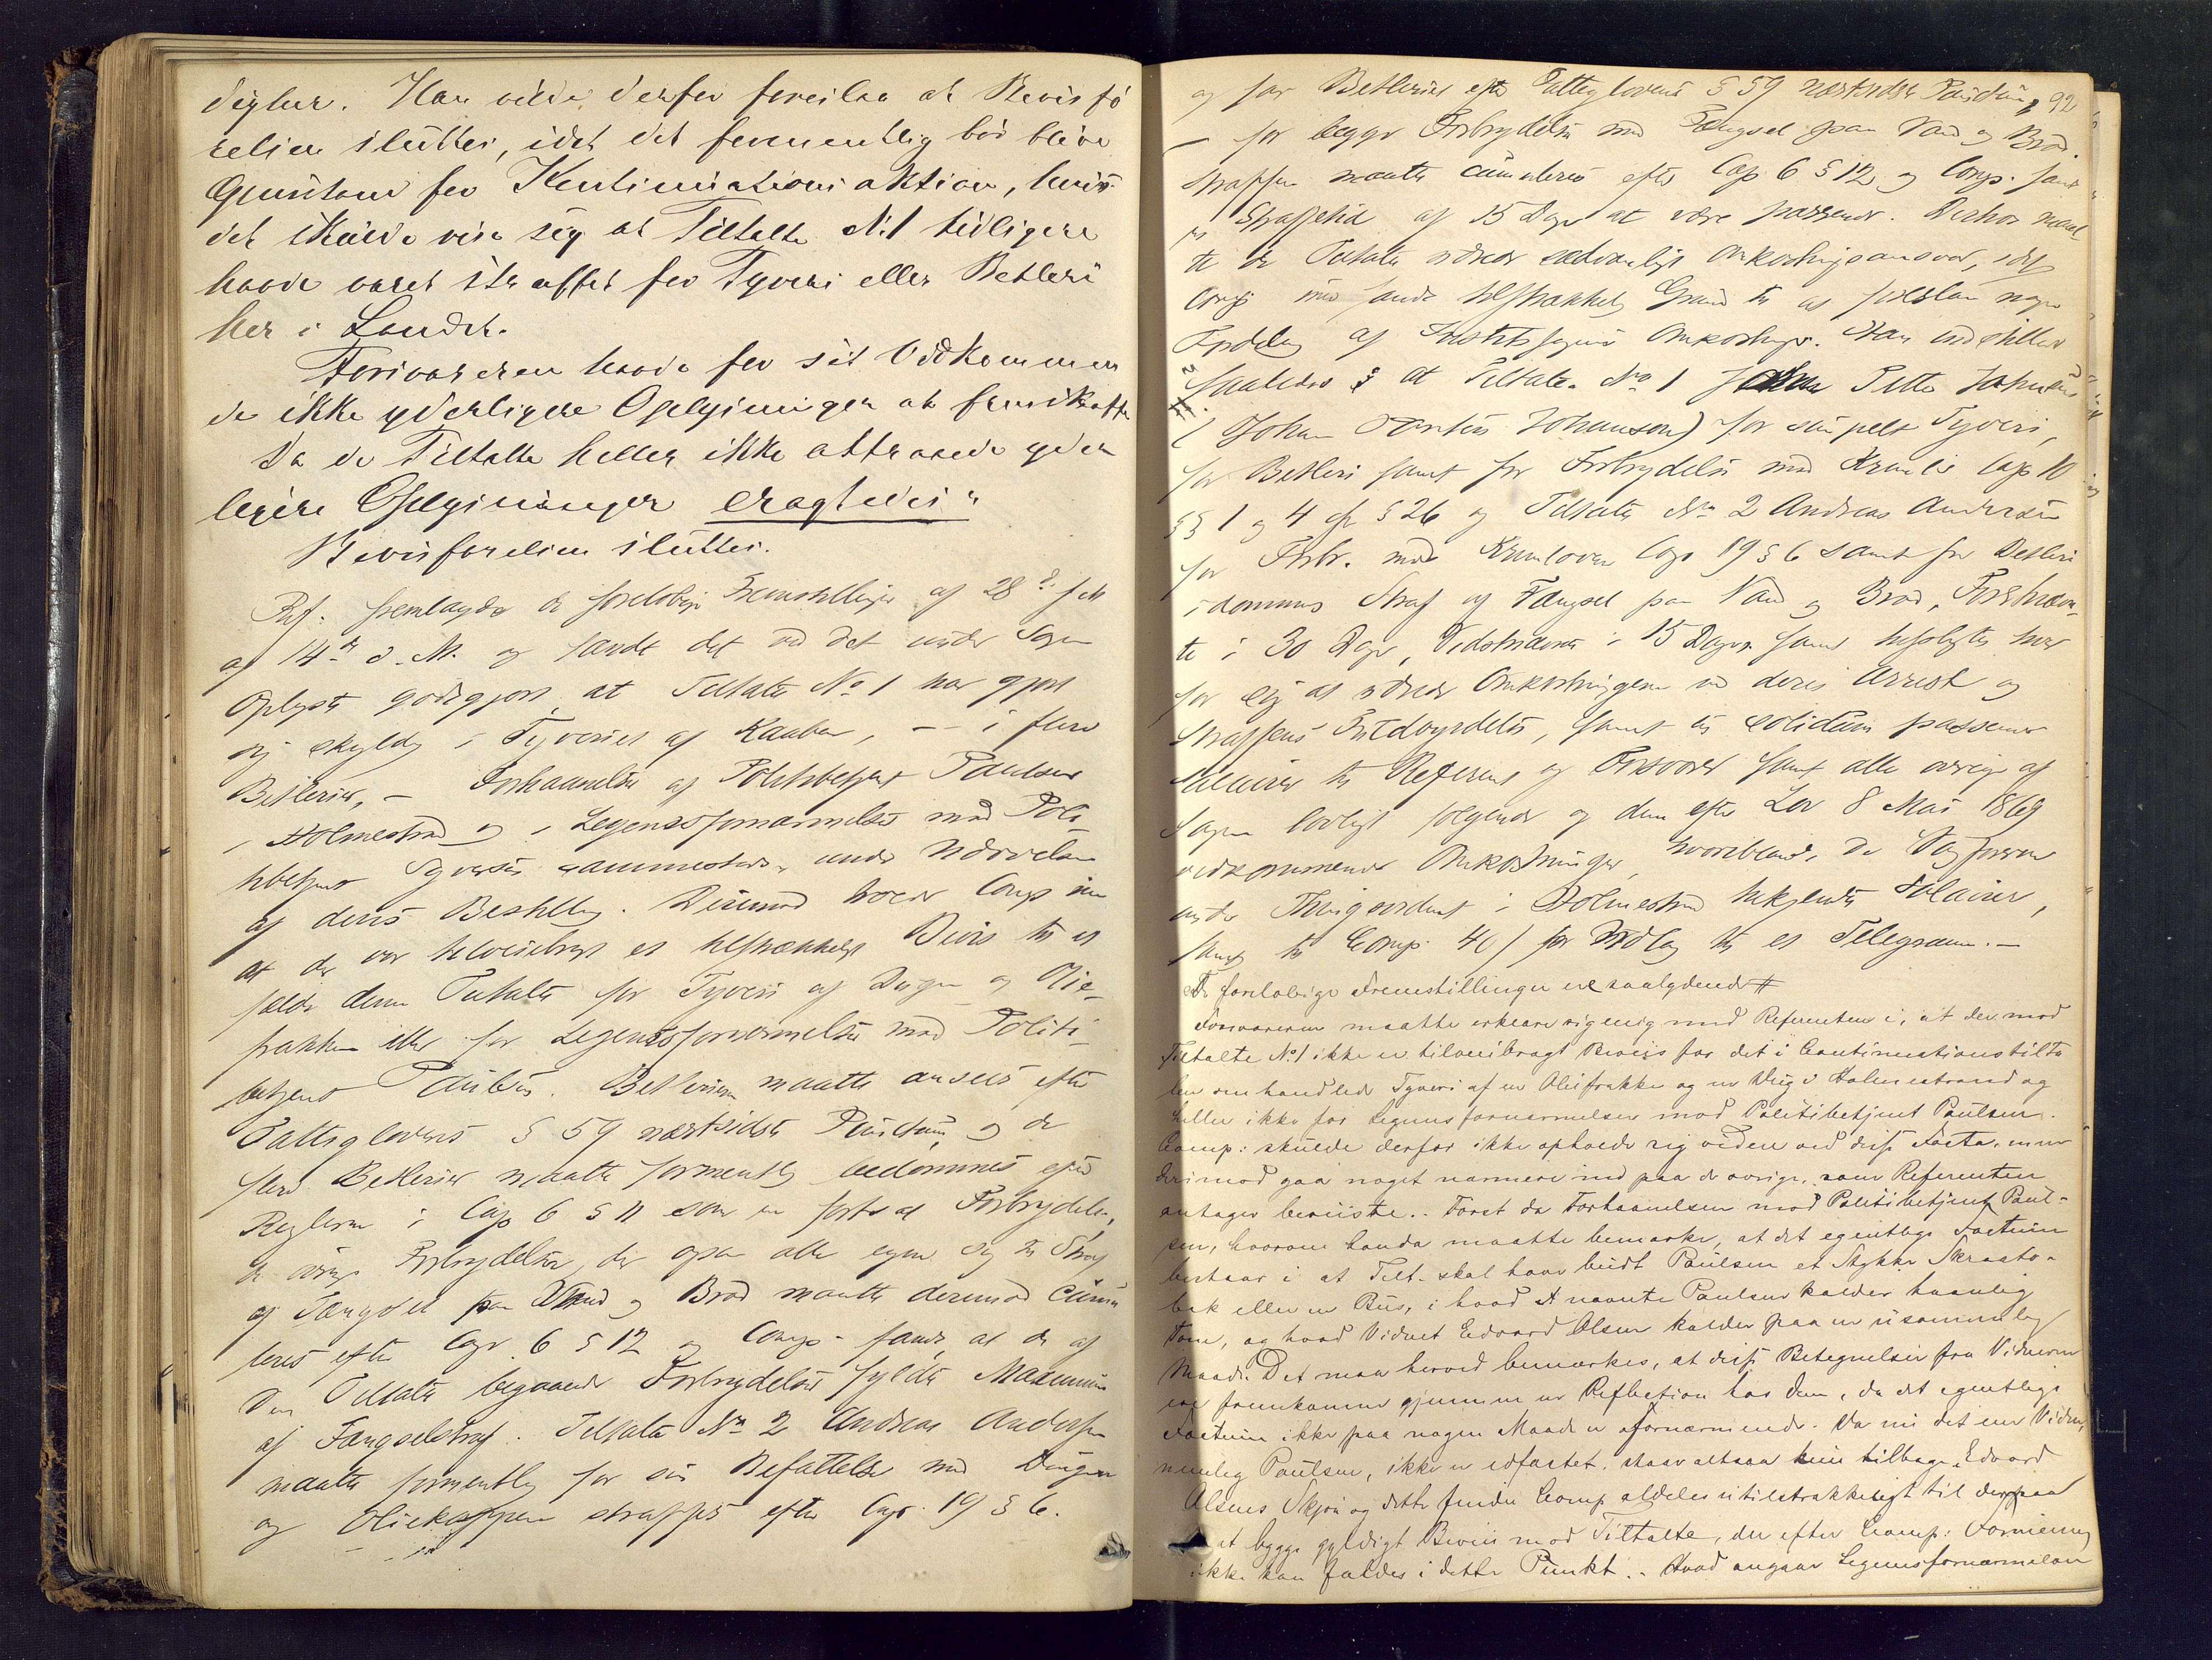 digheer. Han vilde derfor foreslaa at Bevisfø
relsen sluttes, idet det formentlig bør blive
Gjenstand for Kontinuationsaktion, hvis
det skulde vise sig at Tiltalte N:1 tidligere
havde været straffet for Tyveri eller Betleri
her i Landet.
Forsvareren havde for sit Vedkommen
de ikke yderligere Oplysninger at fremskaffe
Da de Tiltalte heller ikke attraaede yder
ligere Oplysninger eragtedes:
Bevisførelsen sluttes.
Ref. fremlagde de foreløbige Fremstillinger af 28de f M
af 14de d. M. og fandt det ved det under Sagen
Oplyste godtgjort, at Tiltalte No 1 har gjort
sig skyldig i Tyveriet af Kaaben, – i flere
Betlerier, – Forhaanelse af Politibetjent Paulsen
i Holmestrand og i Legemsfornærmelse mod Poli
tibetjent Syversen sammesteds under Udøvelsen
af deres Bestilling. Derimod troede Comp ikke
at der var tilveiebragt et tilstrækkeligt Bevis til at
fælde denne Tiltalte for Tyveri af Dugen og Olie-
frakken eller for Legemsfornærmelse mod Politi
betjent Paulsen. Betlerierne maatte ansees efter
Fattiglovens § 59 næstsidste Punctum, og de
flere Betlerier maatte formentlig bedømmes efter
Reglerne i Cap 6 § 11 som en fortsat Forbrydelse,
de øvrige Forbrydelser, der ogsaa alle egne sig til Straf
af Fængsel paa Vand og Brød maatte derimod cumu
leres efter Cap. 6 § 12 og Comp. fandt, at de af
den Tiltalte begaaede Forbrydelser fyldte Maximum
af Fængselstraf. Tiltalte No 2 Andreas Andersen
maatte formentlig for sin Befattelse med Dugen
og Oliekappen straffes efter Cap. 19 § 6.
og for Betleriet efter Fattiglovens § 59 næstsidste Punctum, 92
– for begge Forbrydelser med Fængsel paa Vand og Brød.
Straffen maatte cumuleres efter Cap 6 § 12 og Comp. fandt
en Straffetid af 15 Dage at være passende. Derhos maat-
te de Tiltalte udrede sædvanligt Omkostningsansvar, idet
Comp ikke fandt tilstrækkelig Grund til at foreslaa nogen
Fordeling af Justitssagens Omkostninger. Han indstillede
saaledes: at Tiltalte No 1 Johan Petter Johansen
(Johan Johanson) for simpelt Tyveri,
for Betleri samt for Forbrydelse mod Krimlov Cap 10
§§ 1 og 4 cfr § 26 og Tiltalte No 2 Andreas Andersen
for Forbr. mod Krimloven Cap 19 § 6 samt for Betleri
idømmes Straf af Fængsel paa Vand og Brød, Førstnævn-
te i 30 Dage, Sidstnævnte i 15 Dage samt tilpligtes hver
for sig at udrede Omkostningerne ved deres Arrest og
Straffens Fuldbyrdelse, samt in solidum passende
Salairer til Referent og Forsvarer samt alle øvrige af
Sagen lovligt følgende og dem efter Lov 8 Mai 1869
vedkommende Omkostninger, hvoriblandt de Sagføreren
under Thingsvidnet i Holmestrand tilkjendte Salairer,
samt til Comp. 40 f for Udlæg til et Telegram.–
De foreløbige Fremstillinger ere saalydende #
Forsvareren maatte erklære sig enig med Referenten i, at der mod
Tiltalte No1 ikke er tilveiebragt Beviis for det i Continuationstilta
len omhandlede Tyveri af en Oliefrakke og en Dug i Holmestrand og
heller ikke for Legemsfornærmelsen mod Politibetjent Paulsen.
Comp: skulde derfor ikke opholde sig videre ved disse Facta, men
derimod gaa noget nærmere ind paa de øvrige, som Referenten
antager beviiste.. Først da Forhaanelsen mod Politibetjent Paul-
sen, hvorom handa maatte bemærke, at det egentlige Factum
bestaar i at Tilt. skal have budt Paulsen et Stykke Skraato-
bak eller en Bus, i hvad st nævnte Paulsen kalder haanlig
Tone, og hvad Vidnet Edvard Olsen kalder paa en usømmelig
Maade. Det maa herved bemærkes, at disse Betegnelser fra Vidnerne
ere fremkomne gjennem en Reflection hos dem, da det egentlige
Factum ikke paa nogen Maade er fornærmende. Da nu det ene Vidne,
nemlig Paulsen, ikke er edfæstet, staar altsaa kun tilbage Edvard
Olsens Skjøn og dette finder Comp aldeles utilstrækkeligt til derpaa
at bygge gyldigt Beviis mod Tiltalte, der efter Comp: Formening
ikke kan fældes i dette Punkt.. Hvad angaar Legemsfornærmelsen